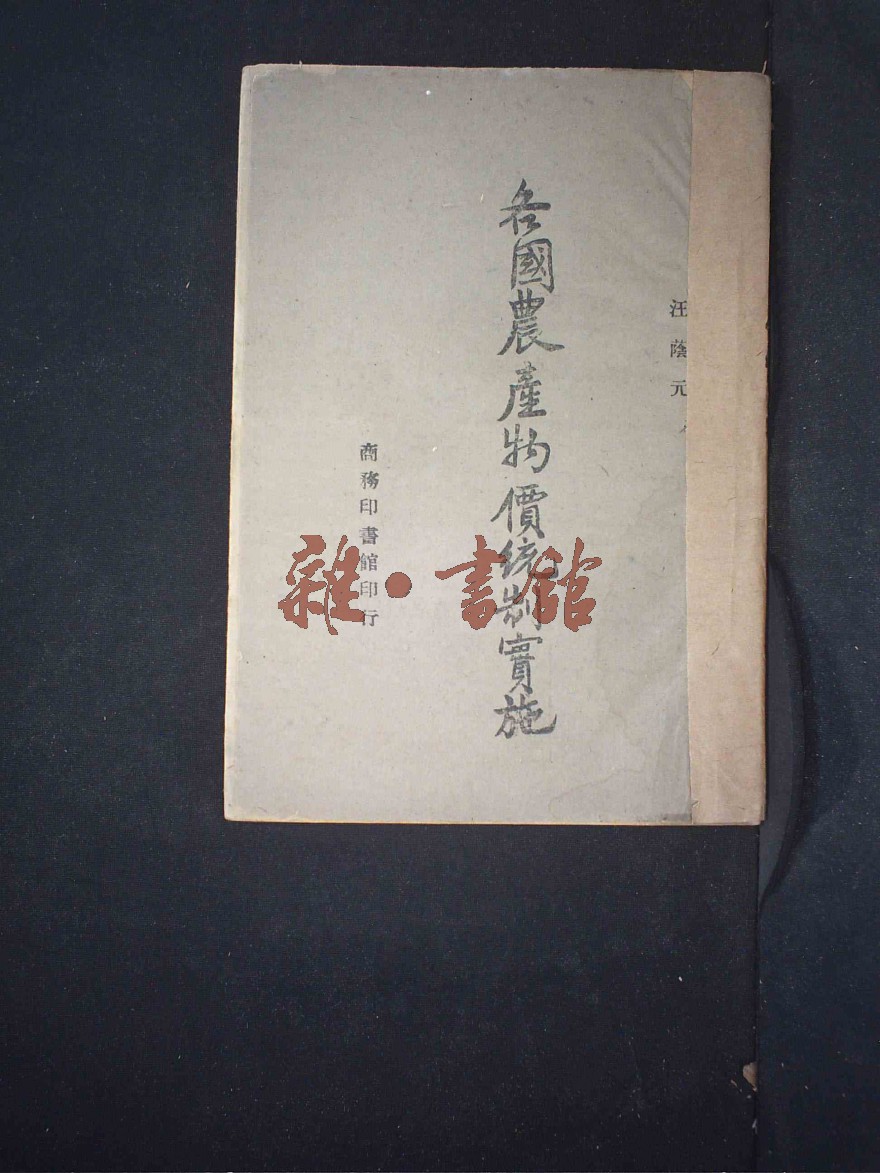 汪蔭元
各國農產物價統制實施
商務印書館印行
雜·書館